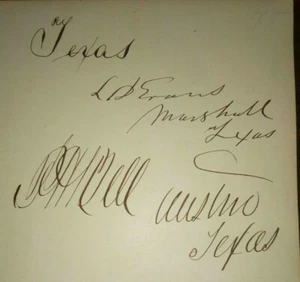 Texas
L D Evans
Marshall
Texas
Austin
Texas